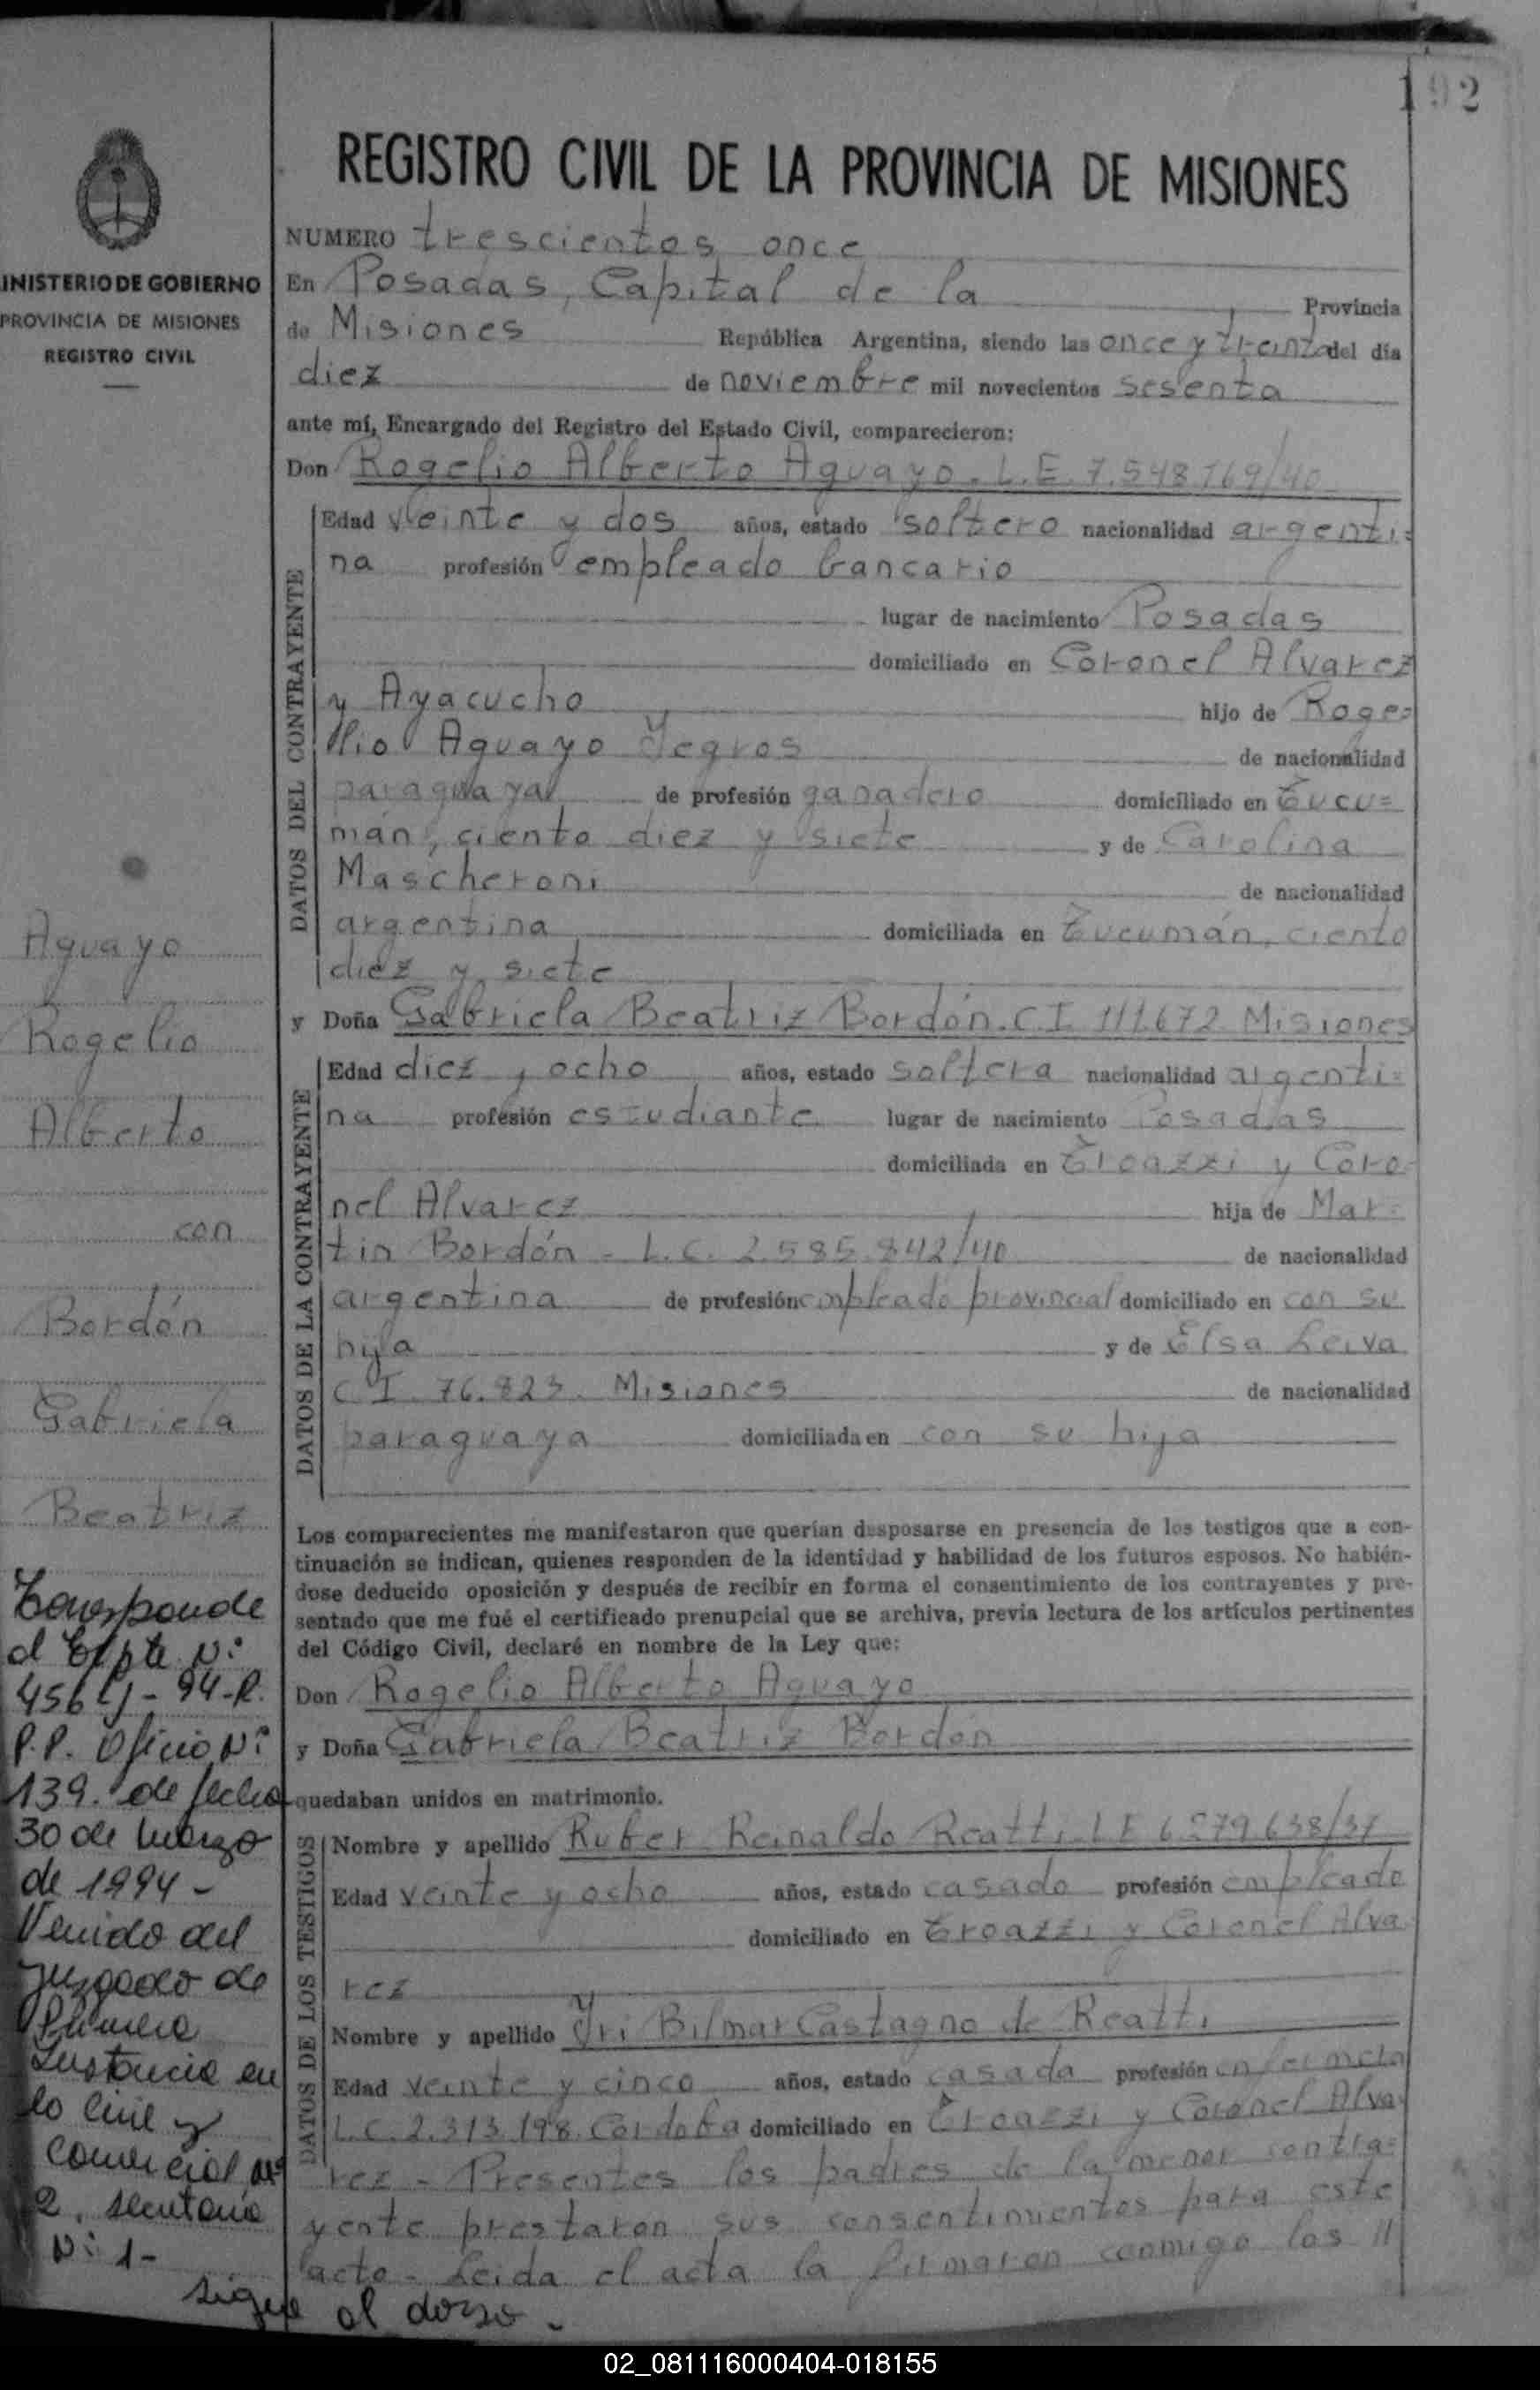 192
REGISTRO CIVIL DE LA PROVINCIA DE MISIONES
INISTERIO DE GOBIERNO
PROVINCIA DE MISIONES
REGISTRO CIVIL
NUMERO trescientos once
En Posadas, Capital de la Provincia
de Misiones República Argentina, siendo las once y treinta del día
diez de noviembre mil novecientos sesenta
ante mí, Encargado del Registro del Estado Civil, comparecieron:
Don Rogelio Alberto Aguayo. L.E. 7.548.769/40
DATOS DEL CONTRAYENTE
Edad veinte y dos años, estado soltero nacionalidad argenti=
na profesión empleado bancario
lugar de nacimiento Posadas
domiciliado en Coronel Alvarez
y Ayacucho hijo de Roge=
lio Aguayo Yegros de nacionalidad
paraguaya de profesión ganadero domiciliado en Tucu=
mán, ciento diez y siete y de Carolina
Mascheroni de nacionalidad
argentina domiciliada en Tucumán, ciento
diez y siete
y Doña Gabriela Beatriz Bordón. C I 111.672 Misiones
DATOS DE LA CONTRAYENTE
Edad diez y ocho años, estado soltera nacionalidad argenti=
na profesión estudiante lugar de nacimiento Posadas
domiciliada en Troazzi y Coro-
nel Alvarez hija de Mar=
tin Bordón - L.C. 2.585.842/40 de nacionalidad
argentina de profesión empleado provincial domiciliado en con su
hija y de Elsa Leiva
C I. 76.823. Misiones de nacionalidad
paraguaya domiciliada en con su hija
Los comparecientes me manifestaron que querían desposarse en presencia de los testigos que a con-
tinuación se indican, quienes responden de la identidad y habilidad de los futuros esposos. No habién-
dose deducido oposición y después de recibir en forma el consentimiento de los contrayentes y pre-
sentado que me fué el certificado prenupcial que se archiva, previa lectura de los artículos pertinentes
del Código Civil, declaré en nombre de la Ley que:
Don Rogelio Alberto Aguayo
y Doña Gabriela Beatriz Bordón
quedaban unidos en matrimonio.
DATOS DE LOS TESTIGOS
Nombre y apellido Ruber Reinaldo Reatti L E 6.279.638/37
Edad veinte y ocho años, estado casado profesión empleado
domiciliado en Troazzi y Coronel Alva
rez
Nombre y apellido Yri Bilmar Castagno de Reatti
Edad veinte y cinco años, estado casada profesión enfermera
L.C. 2.313.198. Cordoba domiciliado en Troazzi y Coronel Alva
rez - Presentes los padres de la menor contra=
yente prestaron sus consentimientos para este
acto - Leida el acta la firmaron conmigo los //
Aguayo
Rogelio
Alberto
con
Bordón
Gabriela
Beatriz
Corresponde
al Expte Nº
456 - 94-R.
P.P. Oficio Nº
139. de fecha
30 de marzo
de 1994 -
Venido del
Juzgado de
Primera
Instancia en
lo Civil y
Comercial Nº
2, secretaría
Nº 1-
sigue al dorso.
02_081116000404-018155